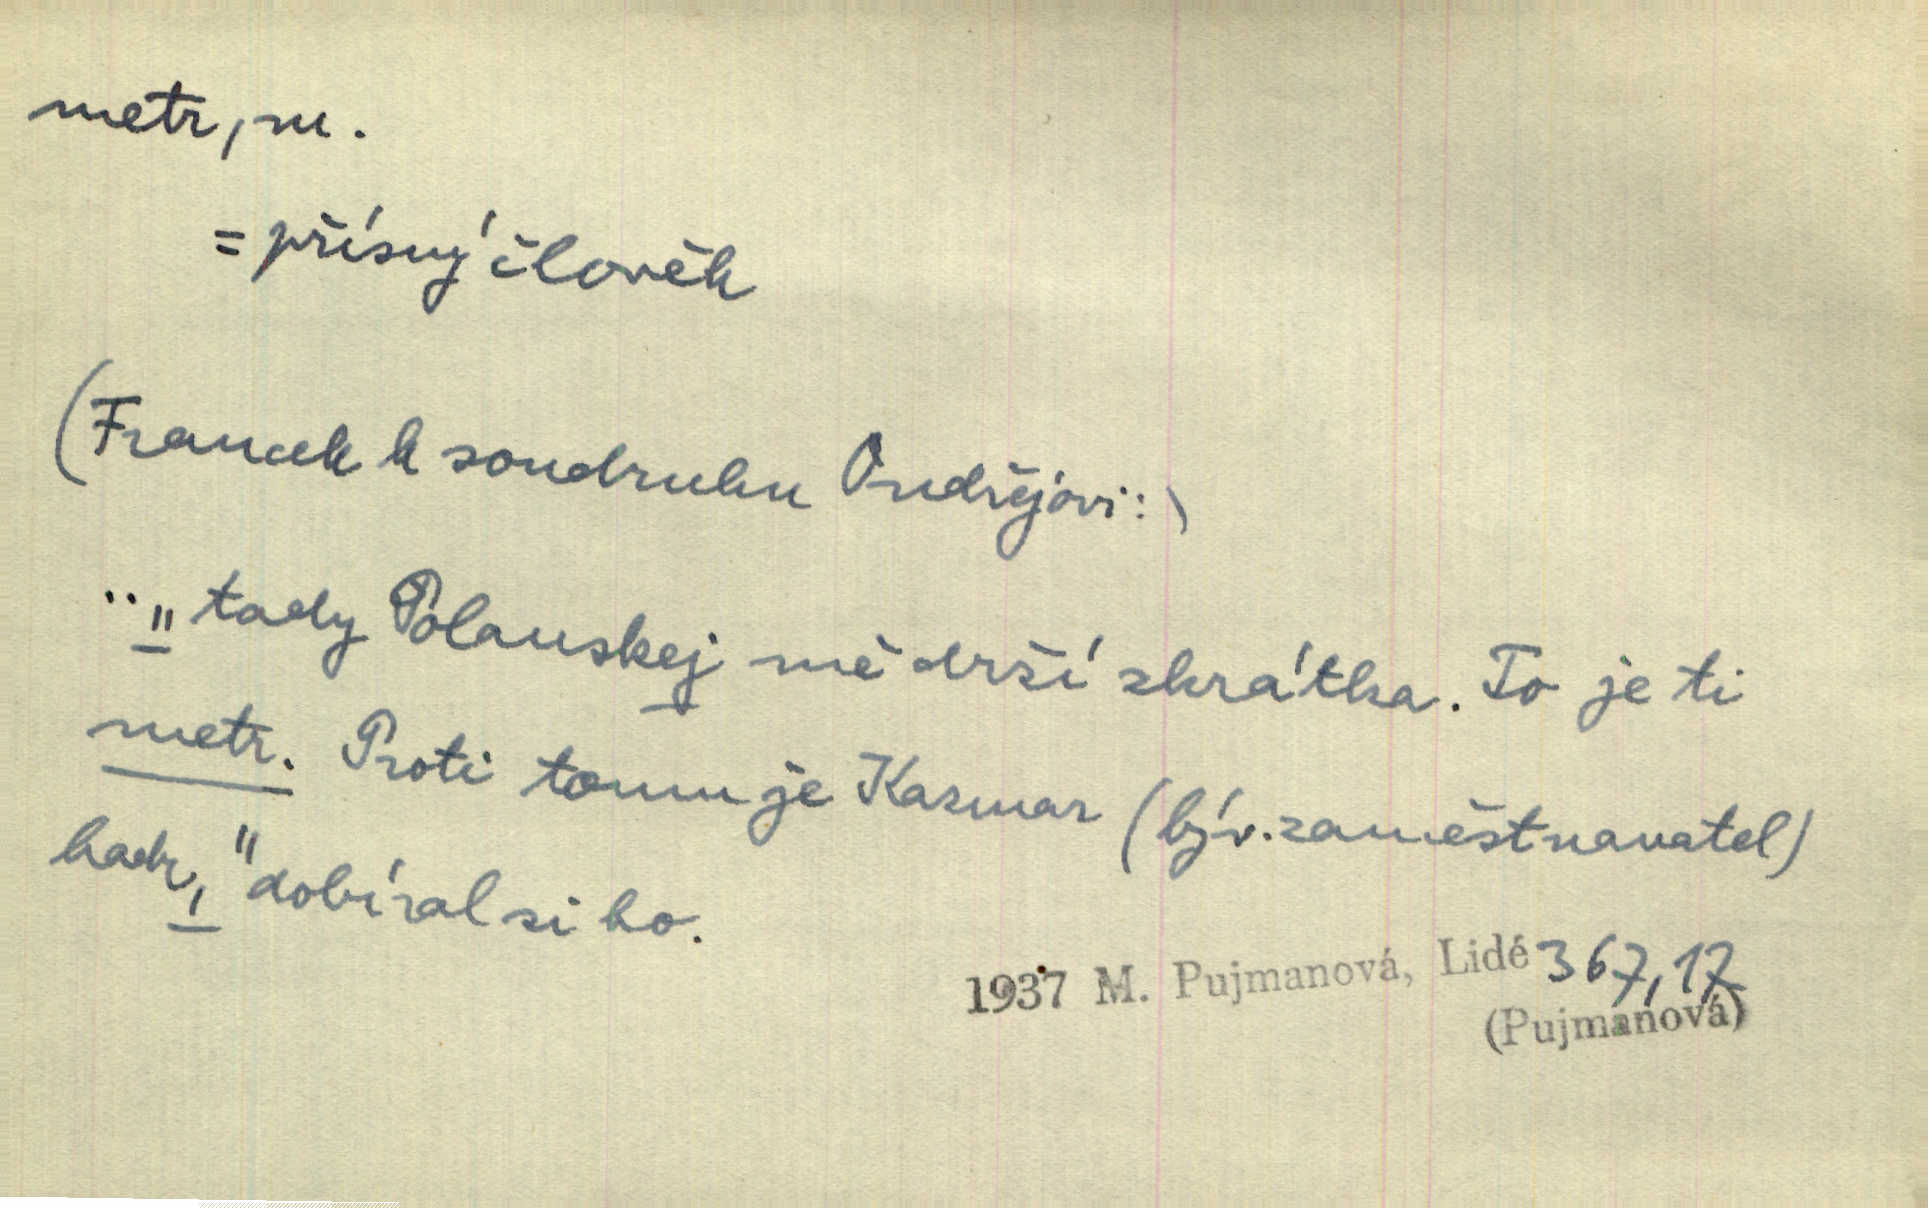 metr, m.
= přísný člověk
(Francek k soudruhu Ondřejovi:)
.. "tady Polanskej mě drží zkrátka. To je ti
metr. Proti tomu je Kazmar (býv. zaměstnavatel)
hadr," dobíral si ho.
1937 M. Pujmanová, Lidé 367,17
(Pujmanová)